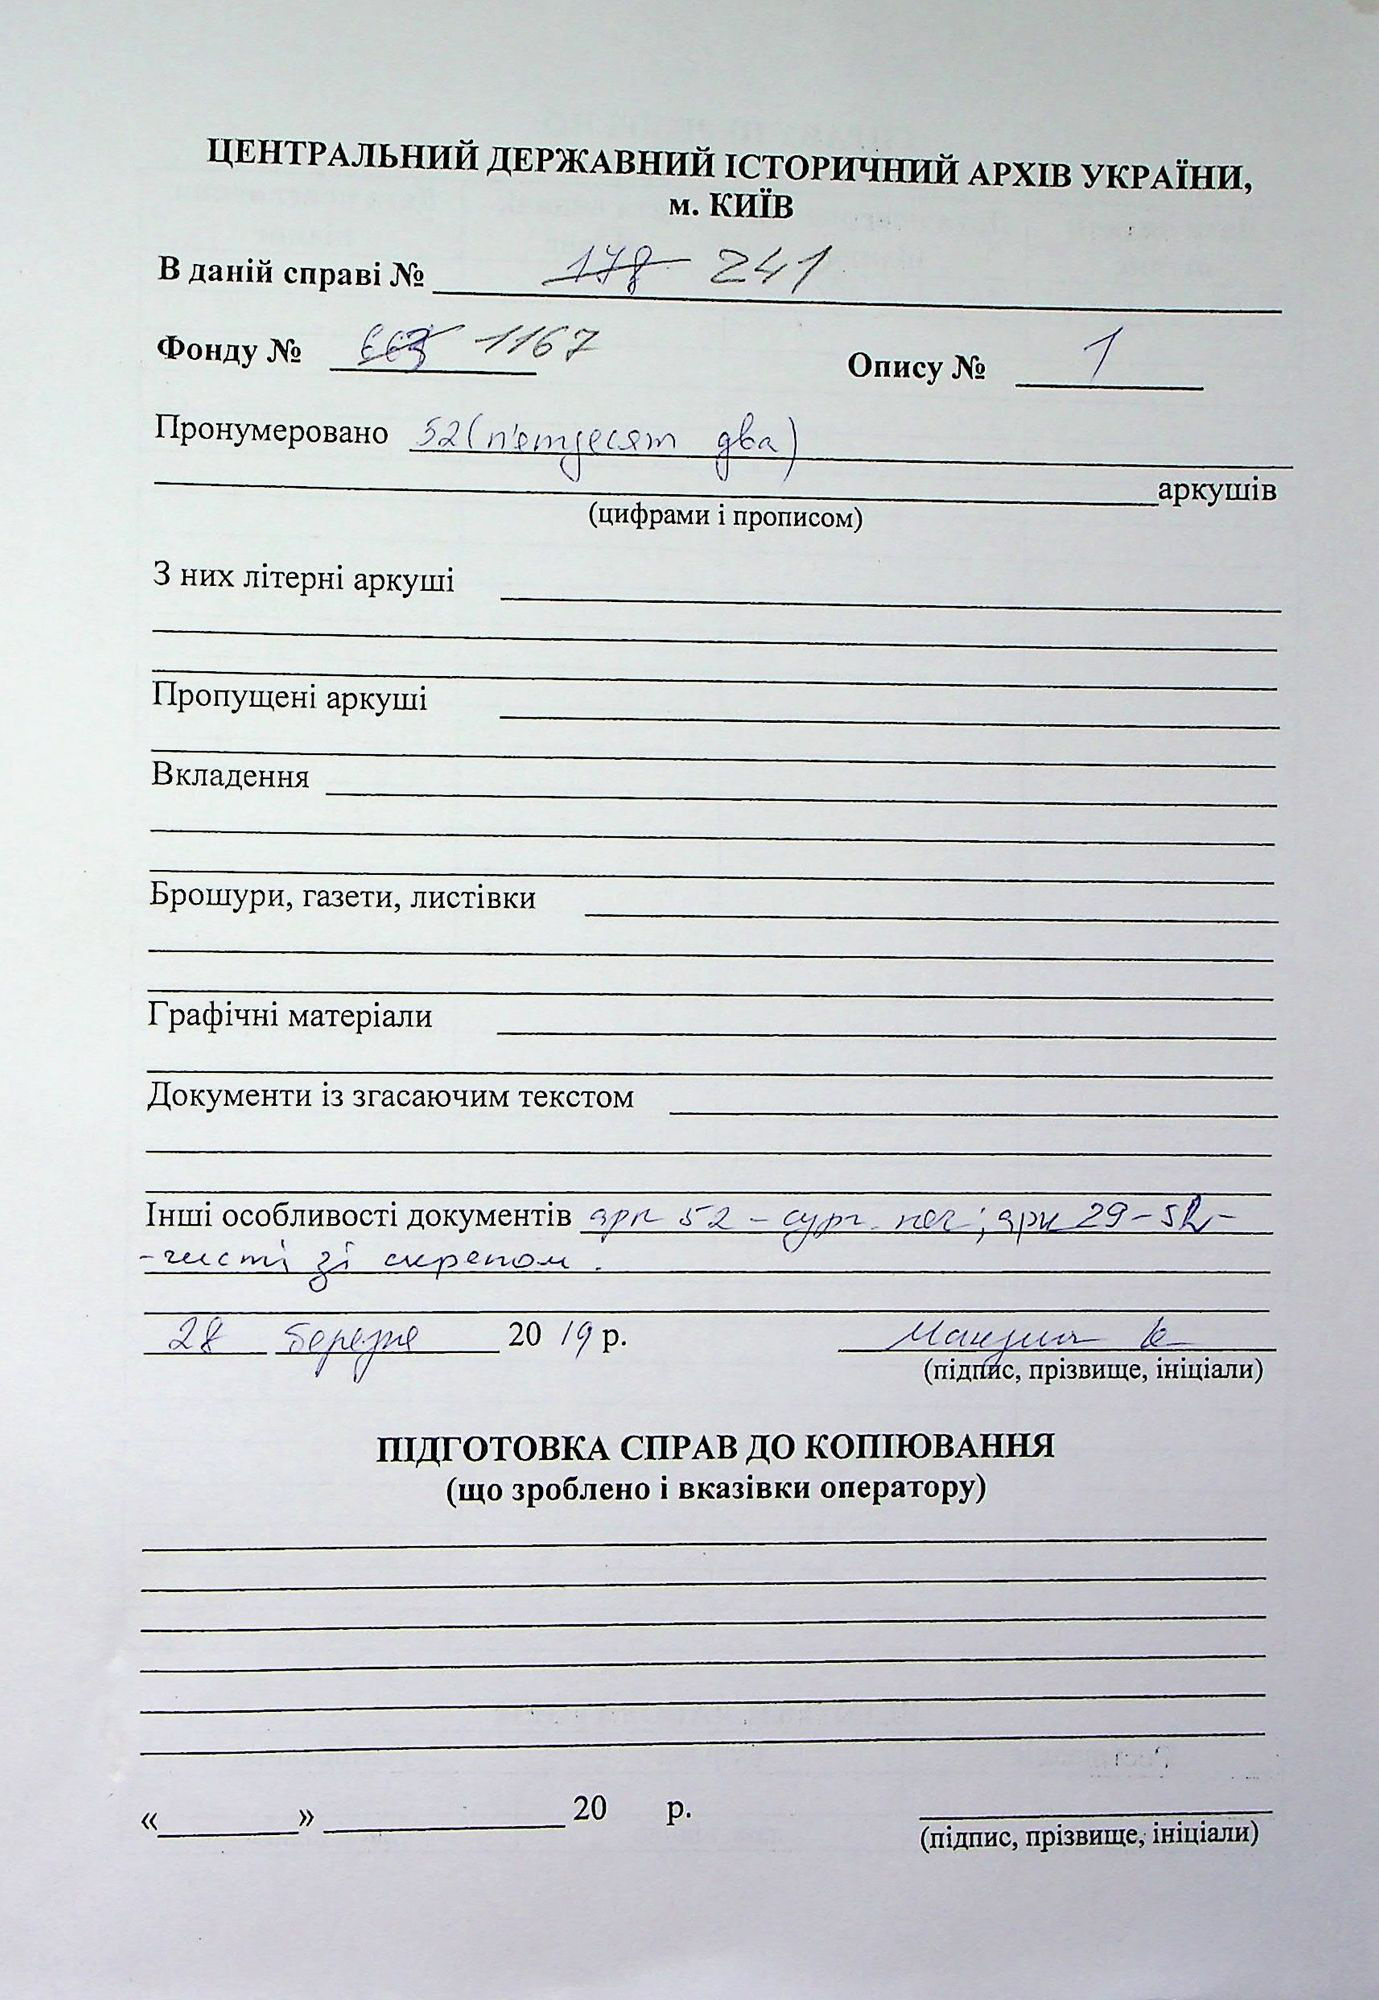 ЦЕНТРАЛЬНИЙ ДЕРЖАВНИЙ ІСТОРИЧНИЙ АРХІВ УКРАЇНИ,
м. КИЇВ
В даній справі № 178 241
Фонду № 663 1167 Опису № 1
Пронумеровано 52 (п'ятдесят два)
аркушів
(цифрами і прописом)
З них літерні аркуші
Пропущені аркуші
Вкладення
Брошури, газети, листівки
Графічні матеріали
Документи із згасаючим текстом
Інші особливості документів арк 52 – сург. печ; арк 29–52–
– чисті зі скрепом.
28 березня 20 19 р.
(підпис, прізвище, ініціали)
ПІДГОТОВКА СПРАВ ДО КОПІЮВАННЯ
(що зроблено і вказівки оператору)
« » 20 р.
(підпис, прізвище, ініціали)